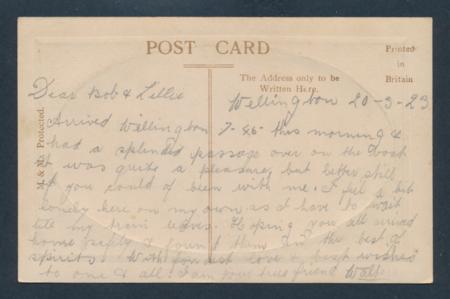 POST CARD
Printed
in
Britain
The Address only to be
Written Here.
M. & M. Protected.
Dear Bob & Lillie
Wellington 20-3-23
Arrived Wellington 7-45 this morning &
had a splendid passage over on the boat
it was quite a pleasure, but better still
if you could of been with me. I feel a bit
lonely here on my own as I have to wait
till my train leaves. Hoping you all arrived
home safely & found them in the best of
spirits. With fondest love & best wishes
to one & all. I am your true friend Walt